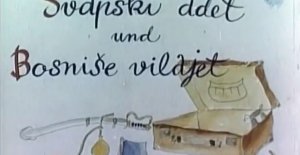 Svapski adet
und
Bosniše vilajet